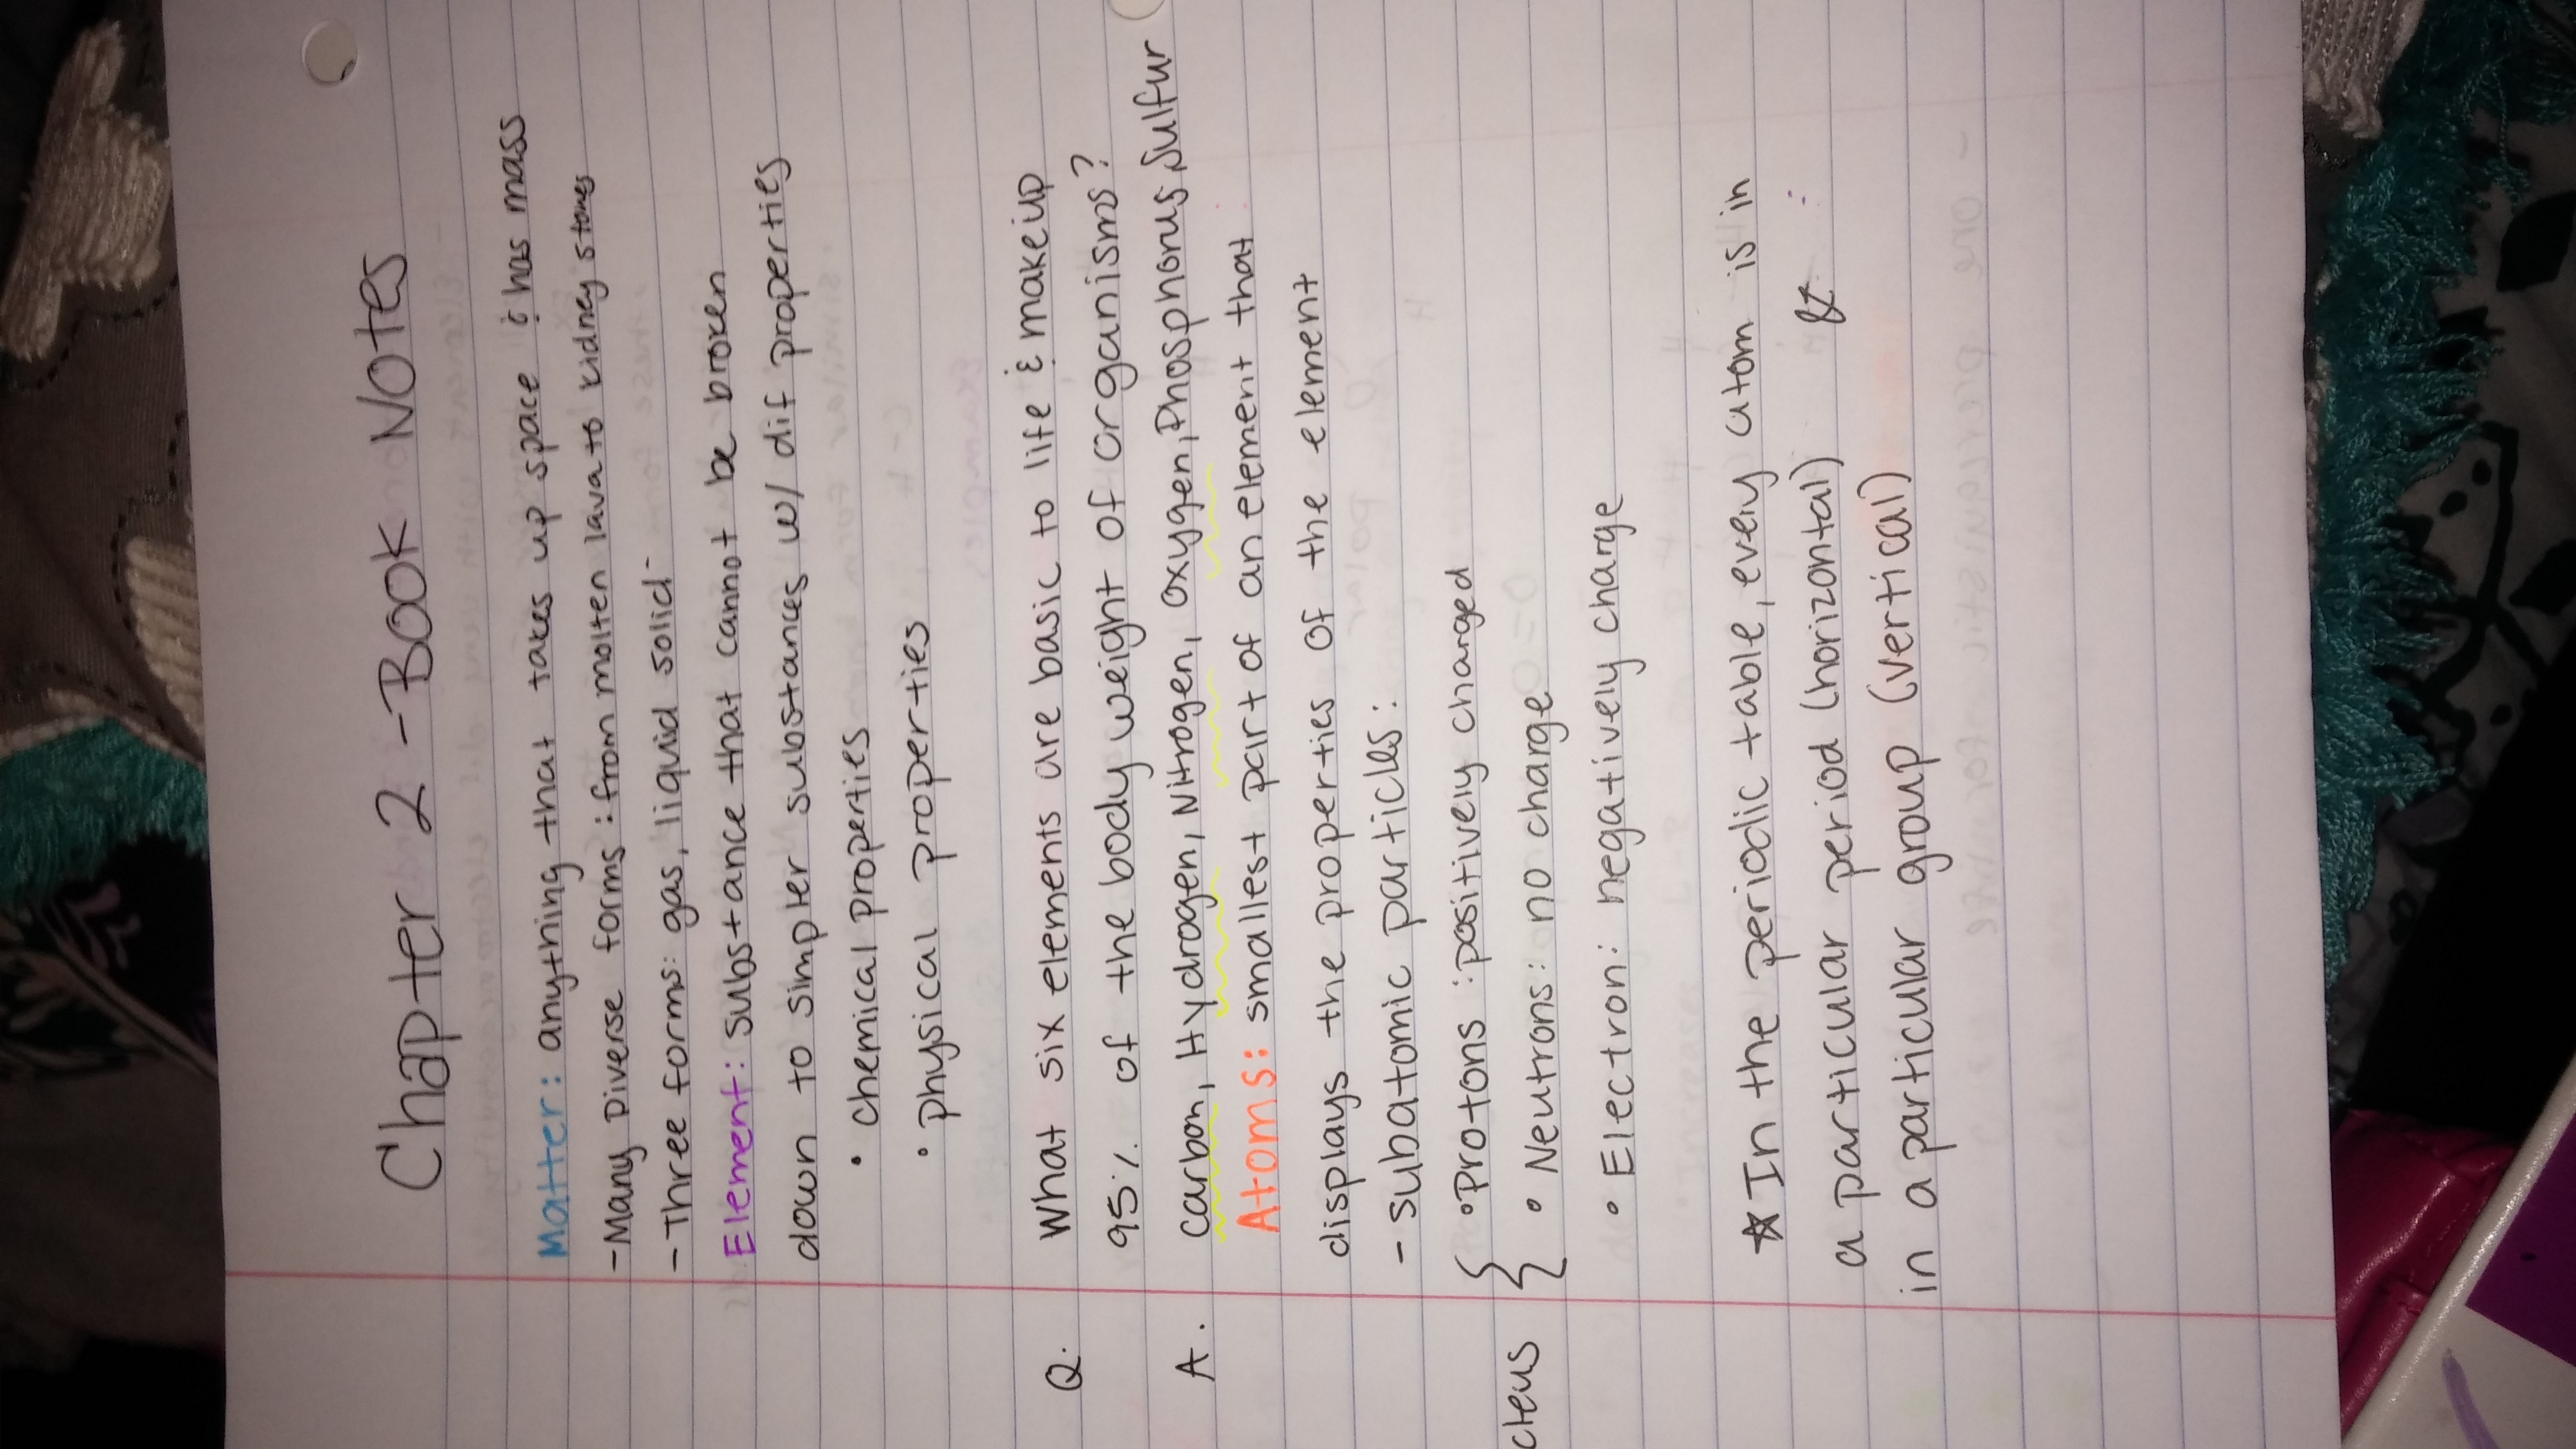 Chapter 2 - Book Notes
Matter: anything that takes up space & has mass
- Many Diverse forms: from molten lava to kidney stones
- Three forms: gas, liquid solid
Element: substance that cannot be broken
down to simpler substances w/ dif properties
• chemical properties
• physical properties
Q. What six elements are basic to life & makeup
95% of the body weight of organisms?
A. carbon, Hydrogen, Nitrogen, oxygen, Phosphorus, Sulfur
Atoms: smallest part of an element that
displays the properties of the element
- subatomic particles:
• Protons: positively charged
cleus { • Neutrons: no charge
• Electron: negatively charge
☆ In the periodic table, every atom is in
a particular period (horizontal) &
in a particular group (vertical)